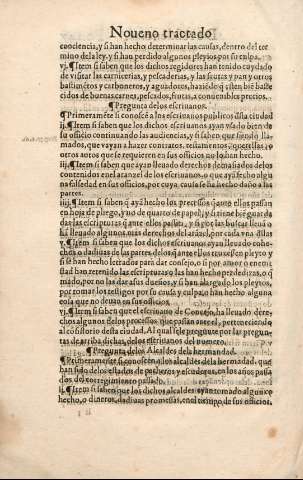 Noueno tractado
conciencia, y si han hecho determinar las causas, dentro del ter
mino dela ley, y si han perdido algunos pleytos por su culpa.
vj. ¶ Item si saben que los dichos regidores han tenido cuydado
de visitar las carnicerias, y pescaderias, y las frutas y pan y otros
bastimētos y carboneros, y aguadores, haziēdo q̄ estē bastec
cidos de carnes, pescados, frutas, a conuenibles precios.
¶ Pregunta delos escriuanos.
¶ Primeramēte si conoscē a los escriuanos publicos dsta ciudad
ij. ¶ Item si saben que los dichos escriuanos ayan vsado bien de
su officio continuando las audiencias, y si saben que siendo lla
mados, que vayan a hazer contratos, testamentos, querellas, o
otros autos que se requieren en sus officios no lo han hecho.
iij. ¶ Item si saben que ayan lleuado derechos demasiados delos
contenidos enel aranzel delos escriuanos, o que aya fecho algu
na falsedad en sus officios, por cuya causa se ha hecho daño a las
partes.
iiij. ¶ Item si saben q̄ ayā hecho los processos q̄ ante ellos passan
en hoja de pliego, y no de quarto de papel, y si tienē biē guarda
das las escripturas q̄ ante ellos passan, y si por las buscar
hā lleuado algunos mas derechos del aranzel, por cosa
v. ¶ Item si saben que los dichos escriuanos ayan lleuado cohe-
chos o dadiuas de las partes, delos q̄ ante ellos tratassen pleyto y
si se han hecho letrados para dar consejo, o si por amor o enemi
stad han retenido las escripturas o las han hecho perdedizas, o q̄
mado, por no las dar a sus dueños, y si han alargado los pleytos,
por tomar los testigos por su causa y culpa, o han hecho alguna
cosa que no deuan en sus officios.
vj. ¶ Item si saben que el escriuano de Concejo, ha lleuado dere
chos algunos delos processos que passan ante el, perteneciendo
al cōsistorio desta ciudad. Al qual se le pregunte por las pregun
tas de arriba dichas, delos escriuanos del numero.
¶ Pregunta delos Alcaldes dela hermandad.
¶ Primeramente si conoscē a los alcaldes dela hermandad, que
han sido delos estados de pecheros y escuderos, en los años passa
dos del corregimiento passado.
ij. ¶ Item si saben que los dichos alcaldes ayan tomado algū co
hecho, o dineros, dadiuas promessas, en el tiempo de sus officios.